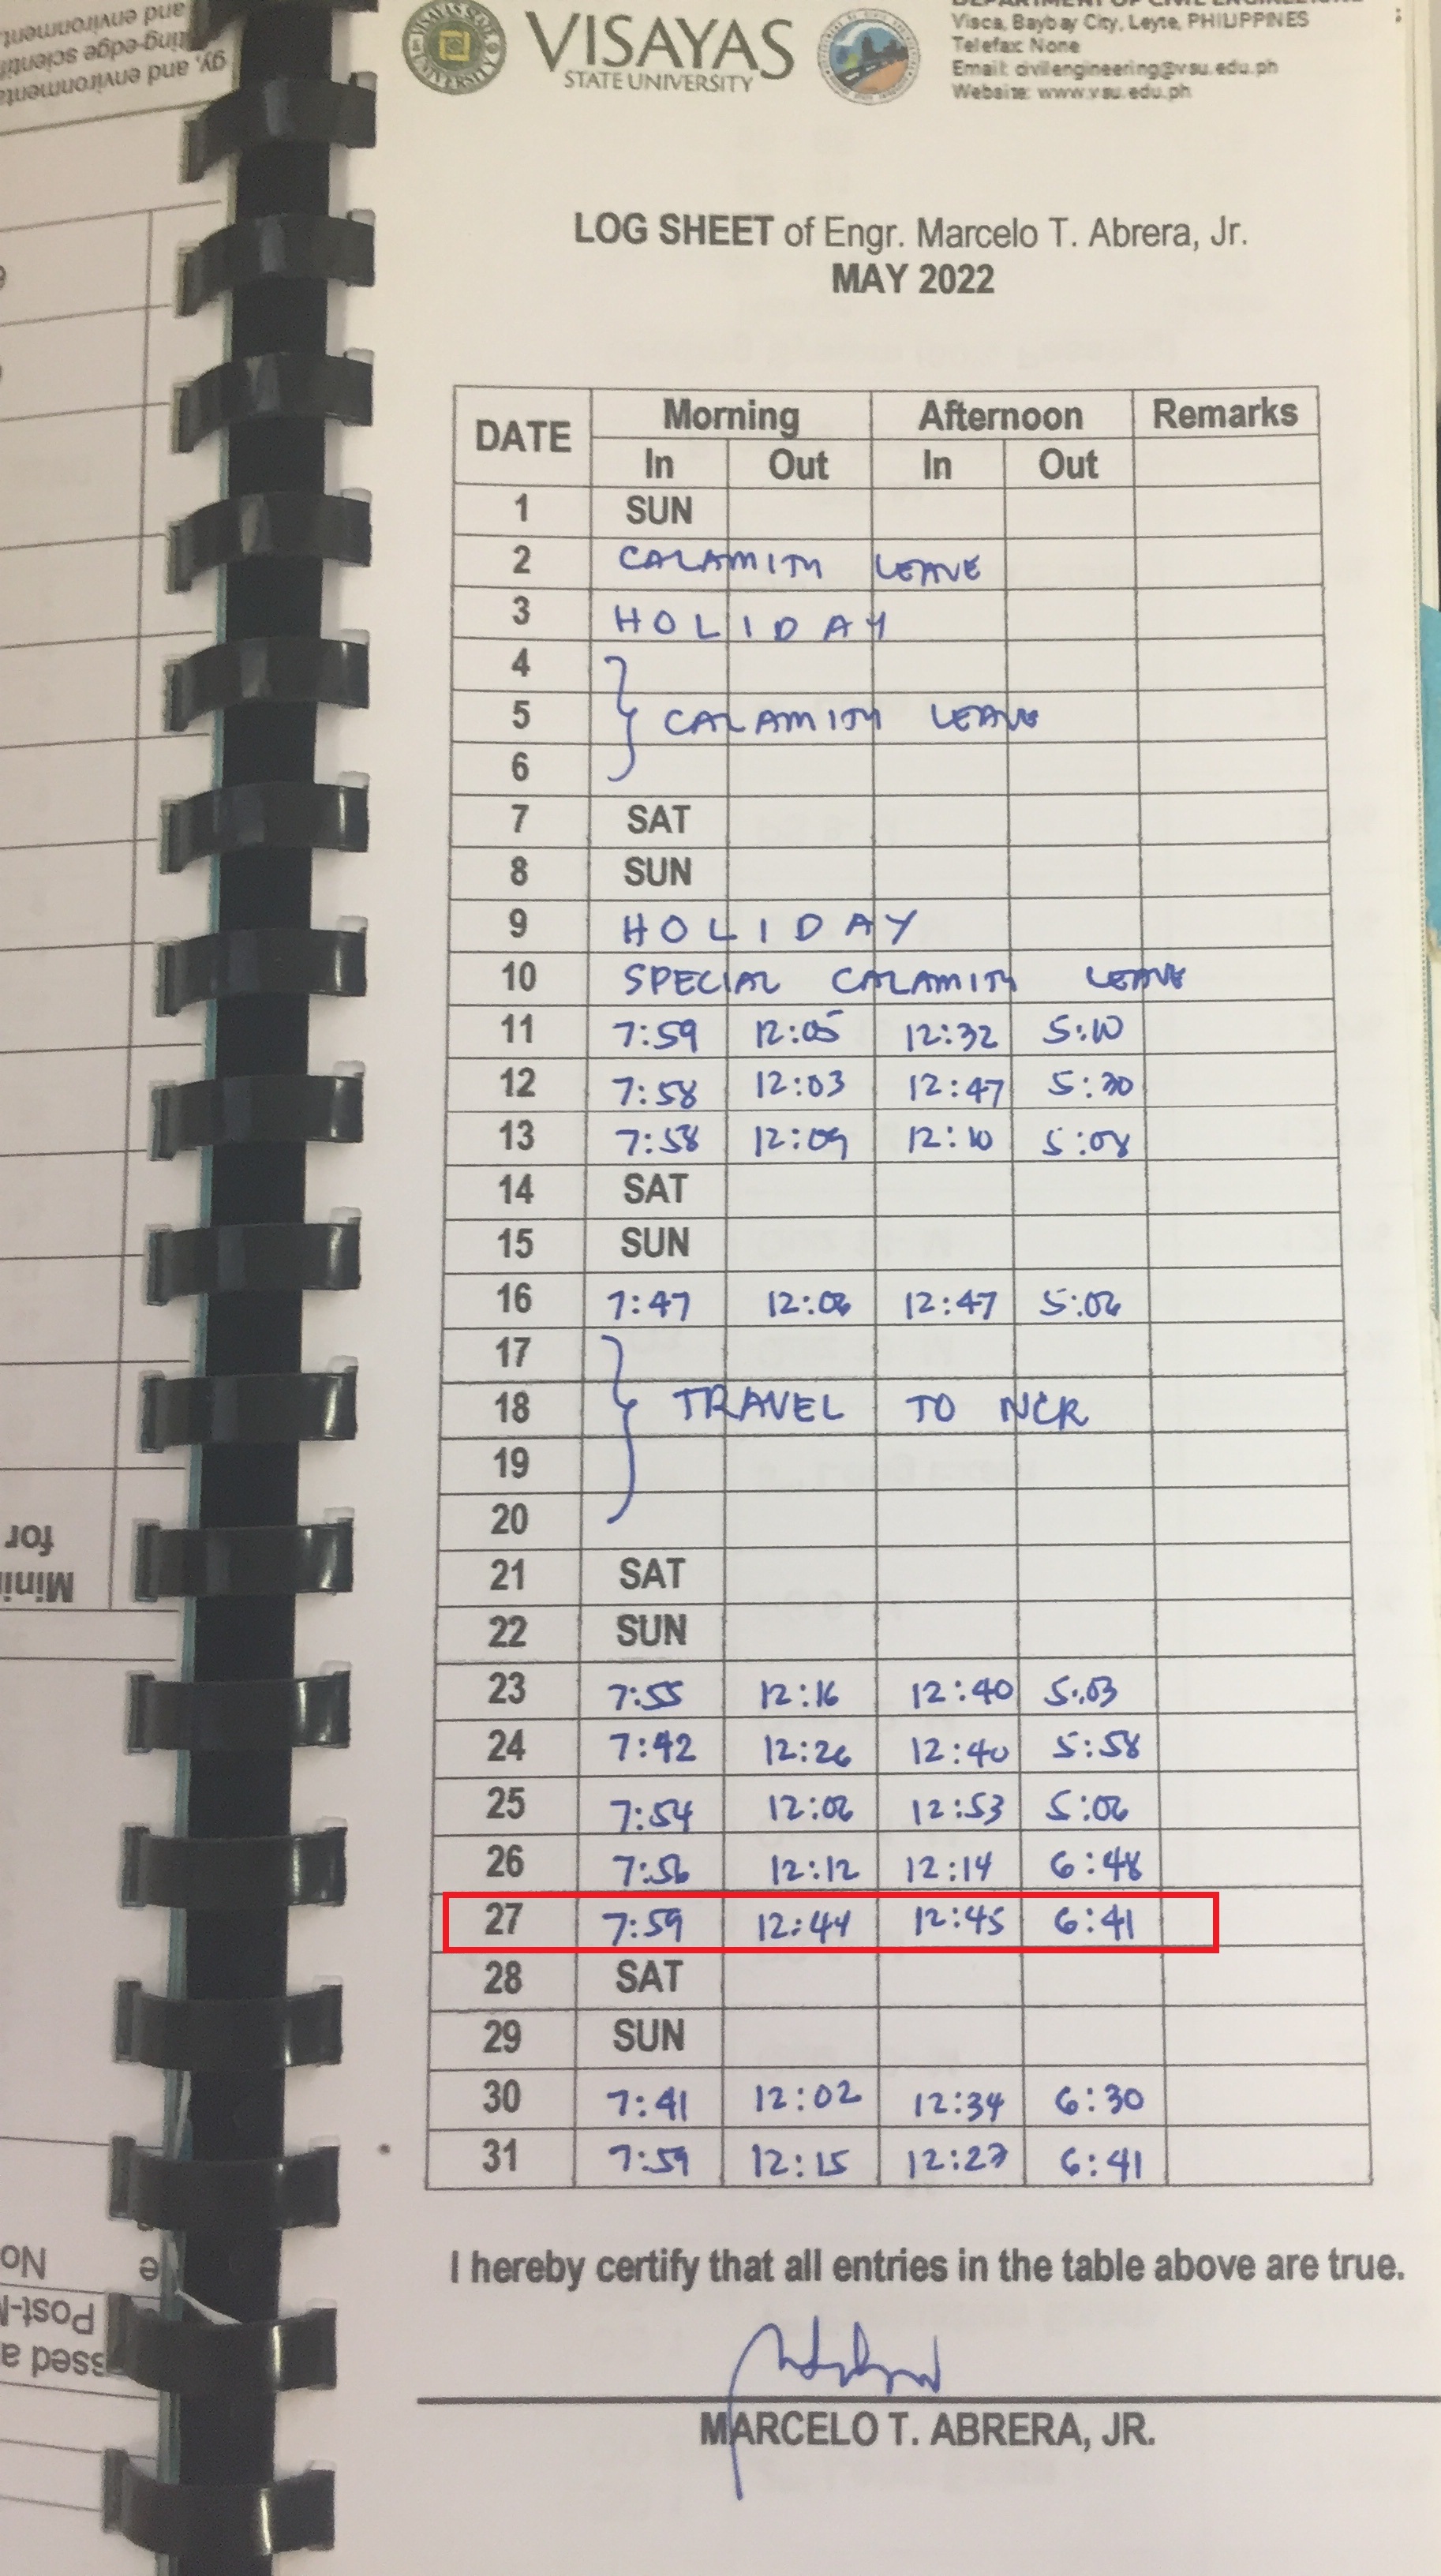 VISAYAS
STATE UNIVERSITY
DEPARTMENT OF CIVIL ENGINEERING
Visca, Baybay City, Leyte, PHILIPPINES
Telefax: None
Email: civilengineering@vsu.edu.ph
Website: www.vsu.edu.ph
LOG SHEET of Engr. Marcelo T. Abrera, Jr.
MAY 2022
DATE Morning Afternoon Remarks
In Out In Out
1 SUN
2 CALAMITY LEAVE
3 HOLIDAY
4
5 CALAMITY LEAVE
6
7 SAT
8 SUN
9 HOLIDAY
10 SPECIAL CALAMITY LEAVE
11 7:59 12:05 12:32 5:10
12 7:58 12:03 12:47 5:30
13 7:58 12:09 12:10 5:08
14 SAT
15 SUN
16 7:47 12:06 12:47 5:06
17
18 TRAVEL TO NCR
19
20
21 SAT
22 SUN
23 7:55 12:16 12:40 5:03
24 7:42 12:26 12:40 5:58
25 7:54 12:06 12:53 5:06
26 7:56 12:12 12:14 6:48
27 7:59 12:44 12:45 6:41
28 SAT
29 SUN
30 7:41 12:02 12:34 6:30
31 7:59 12:15 12:27 6:41
I hereby certify that all entries in the table above are true.
MARCELO T. ABRERA, JR.
and environment.
gy, and environmenta
for
Mini
No
Post-
ssed a